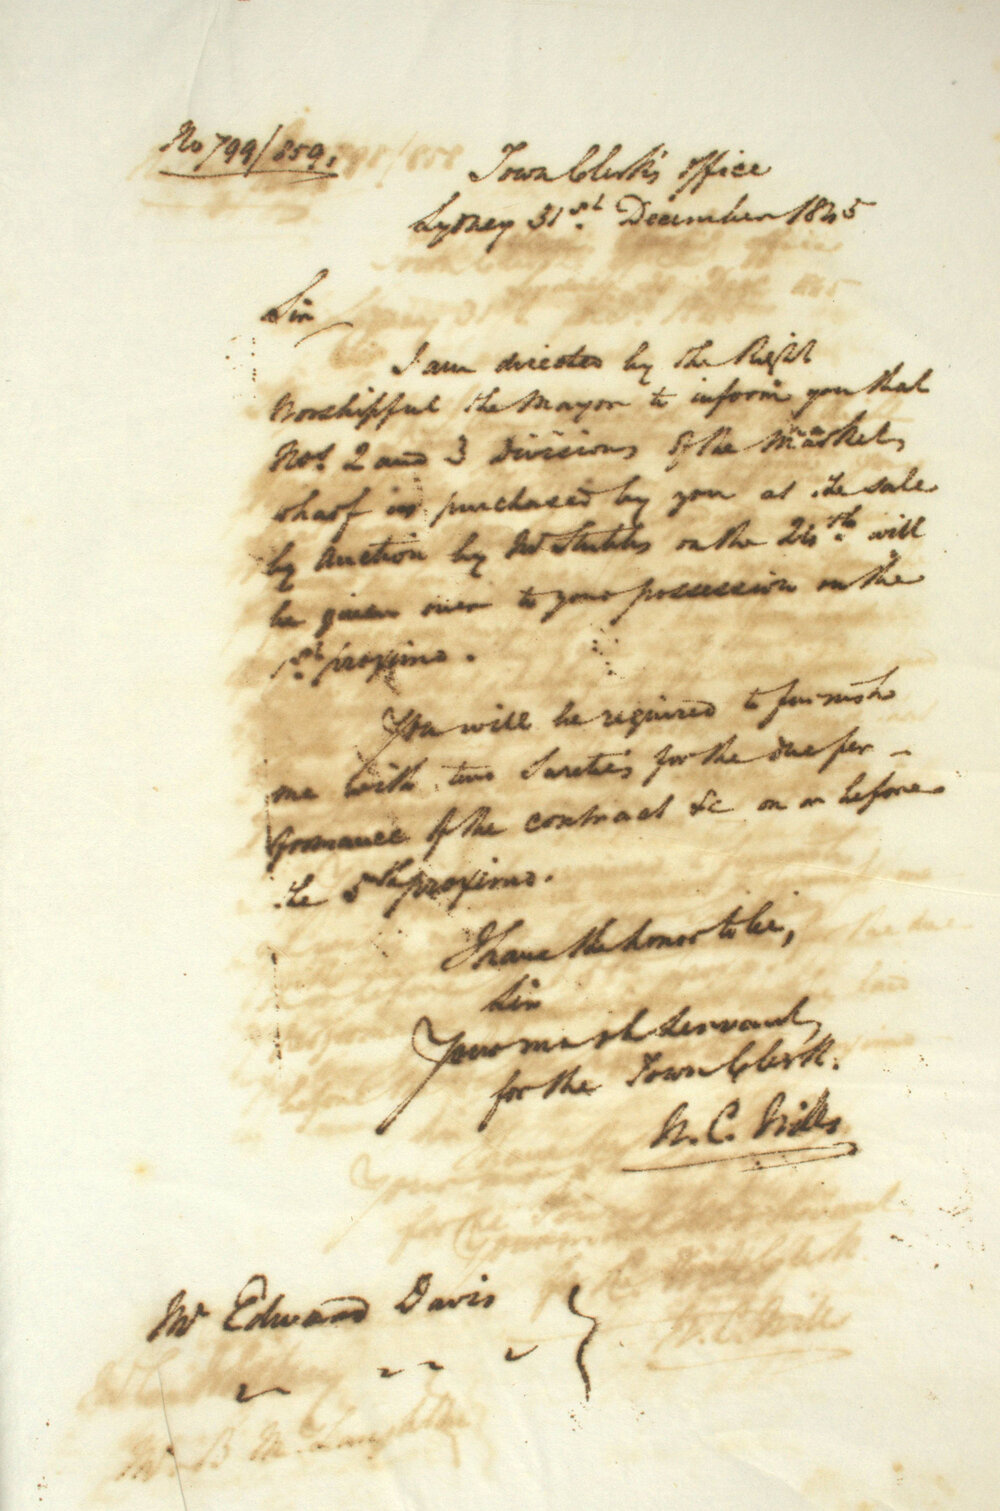 No 799/859.
Town Clerk's Office
Sydney 31st December 1845
Sir
I am directed by the Right
Worshipful the Mayor to inform you that
Nos. 2 and 3 Divisions of the Market
Wharf as purchased by you at the sale
by Auction by Mr Stubbs on the 24th. will
be given over to your possession on the
1st proximo.
You will be required to furnish
me with two Sureties for the due per -
formance of the contract &c on or before
the 5th proximo.
I have the honor to be,
Sir
Your most obt Servant,
for the Town Clerk.
W. C. Wills
Mr Edward Davis
Mr B McLaughlin